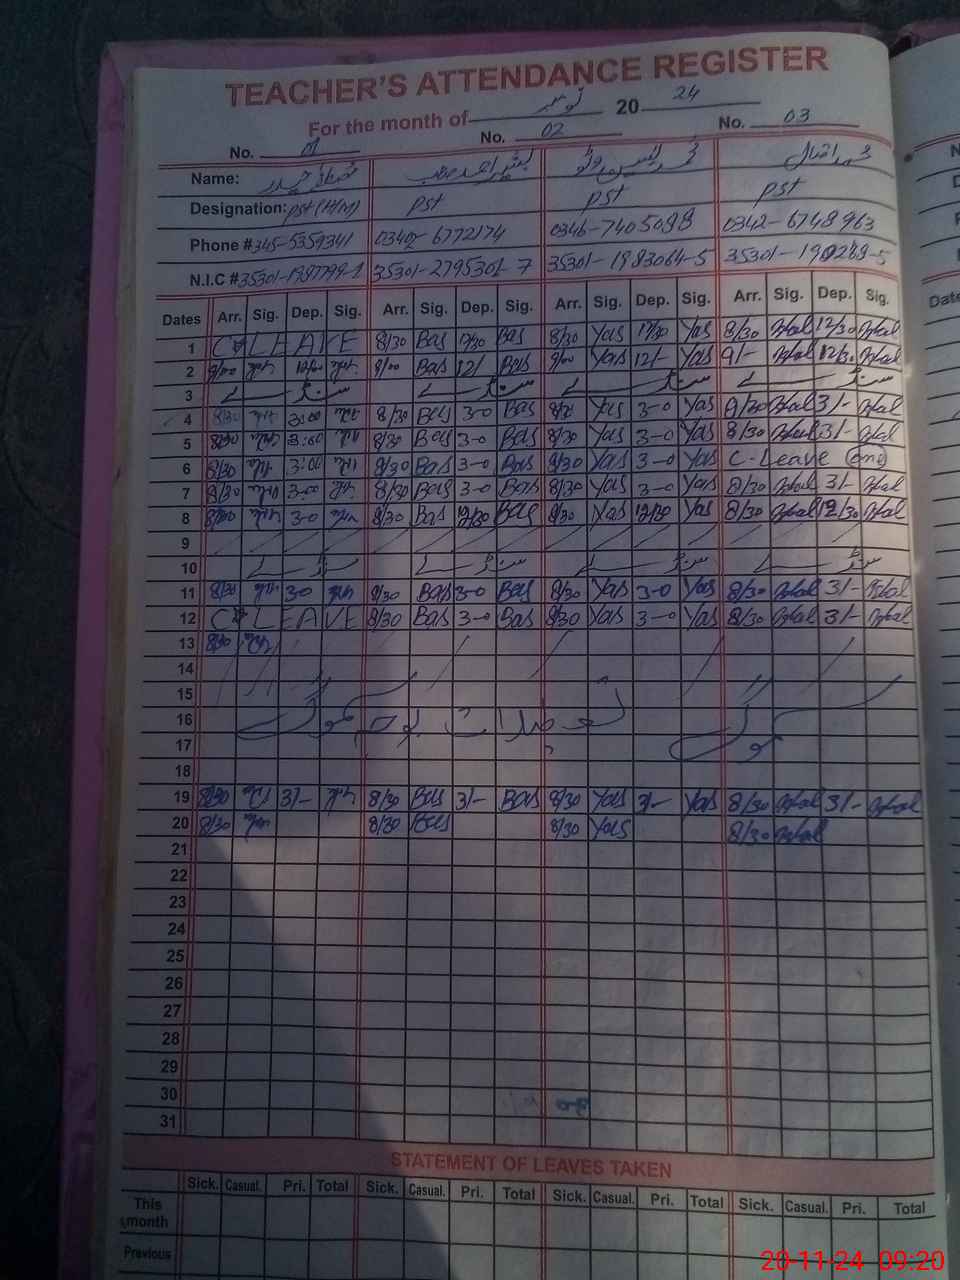 TEACHER'S ATTENDANCE REGISTER
For the month of نومبر 20 24
No. 01 No. 02 No. 03
Name: محمد اقبال
Designation: PST (H/M) PST PST PST
Phone # 345-5359341 0340-6772174 0346-7405098 0342-6748963
N.I.C # 35301-2795301-7 35301-1983064-5 35301-190289-5
Dates Arr. Sig. Dep. Sig. Arr. Sig. Dep. Sig. Arr. Sig. Dep. Sig. Arr. Sig. Dep. Sig.
1 C LEAVE 8/30 Bas 12/30 Bas 8/30 Yas 12/30 Yas 8/30 Iqbal 12/30 Iqbal
2 9/00 12/00 9/00 Bas 12/ Bas 9/00 Yas 12/- Yas 9/- Iqbal 12/30 Iqbal
3 سنڈے سنڈے سنڈے سنڈے
4 8/30 3:00 8/30 Bas 3-0 Bas 8/30 Yas 3-0 Yas 8/30 Iqbal 3/- Iqbal
5 8/30 3:00 8/30 Bas 3-0 Bas 8/30 Yas 3-0 Yas 8/30 Iqbal 3/- Iqbal
6 8/30 3:00 8/30 Bas 3-0 Bas 8/30 Yas 3-0 Yas C-Leave (one)
7 8/30 3-00 8/30 Bas 3-0 Bas 8/30 Yas 3-0 Yas 8/30 Iqbal 3/- Iqbal
8 8/30 3-0 8/30 Bas 12/30 Bas 8/30 Yas 12/30 Yas 8/30 Iqbal 12/30 Iqbal
9
10 سنڈے سنڈے سنڈے سنڈے
11 8/30 3-0 8/30 Bas 3-0 Bas 8/30 Yas 3-0 Yas 8/30 Iqbal 3/- Iqbal
12 C LEAVE 8/30 Bas 3-0 Bas 8/30 Yas 3-0 Yas 8/30 Iqbal 3/- Iqbal
13 8/30
14
15
16 تعطیلات بوجہ سموگ
17
18
19 8/30 3/- 8/30 Bas 3/- Bas 8/30 Yas 3/- Yas 8/30 Iqbal 3/- Iqbal
20 8/30 8/30 Bas 8/30 Yas 8/30 Iqbal
21
22
23
24
25
26
27
28
29
30
31
STATEMENT OF LEAVES TAKEN
Sick. Casual. Pri. Total Sick. Casual. Pri. Total Sick. Casual. Pri. Total Sick. Casual. Pri. Total
This month
Previous
20-11-24 09:20